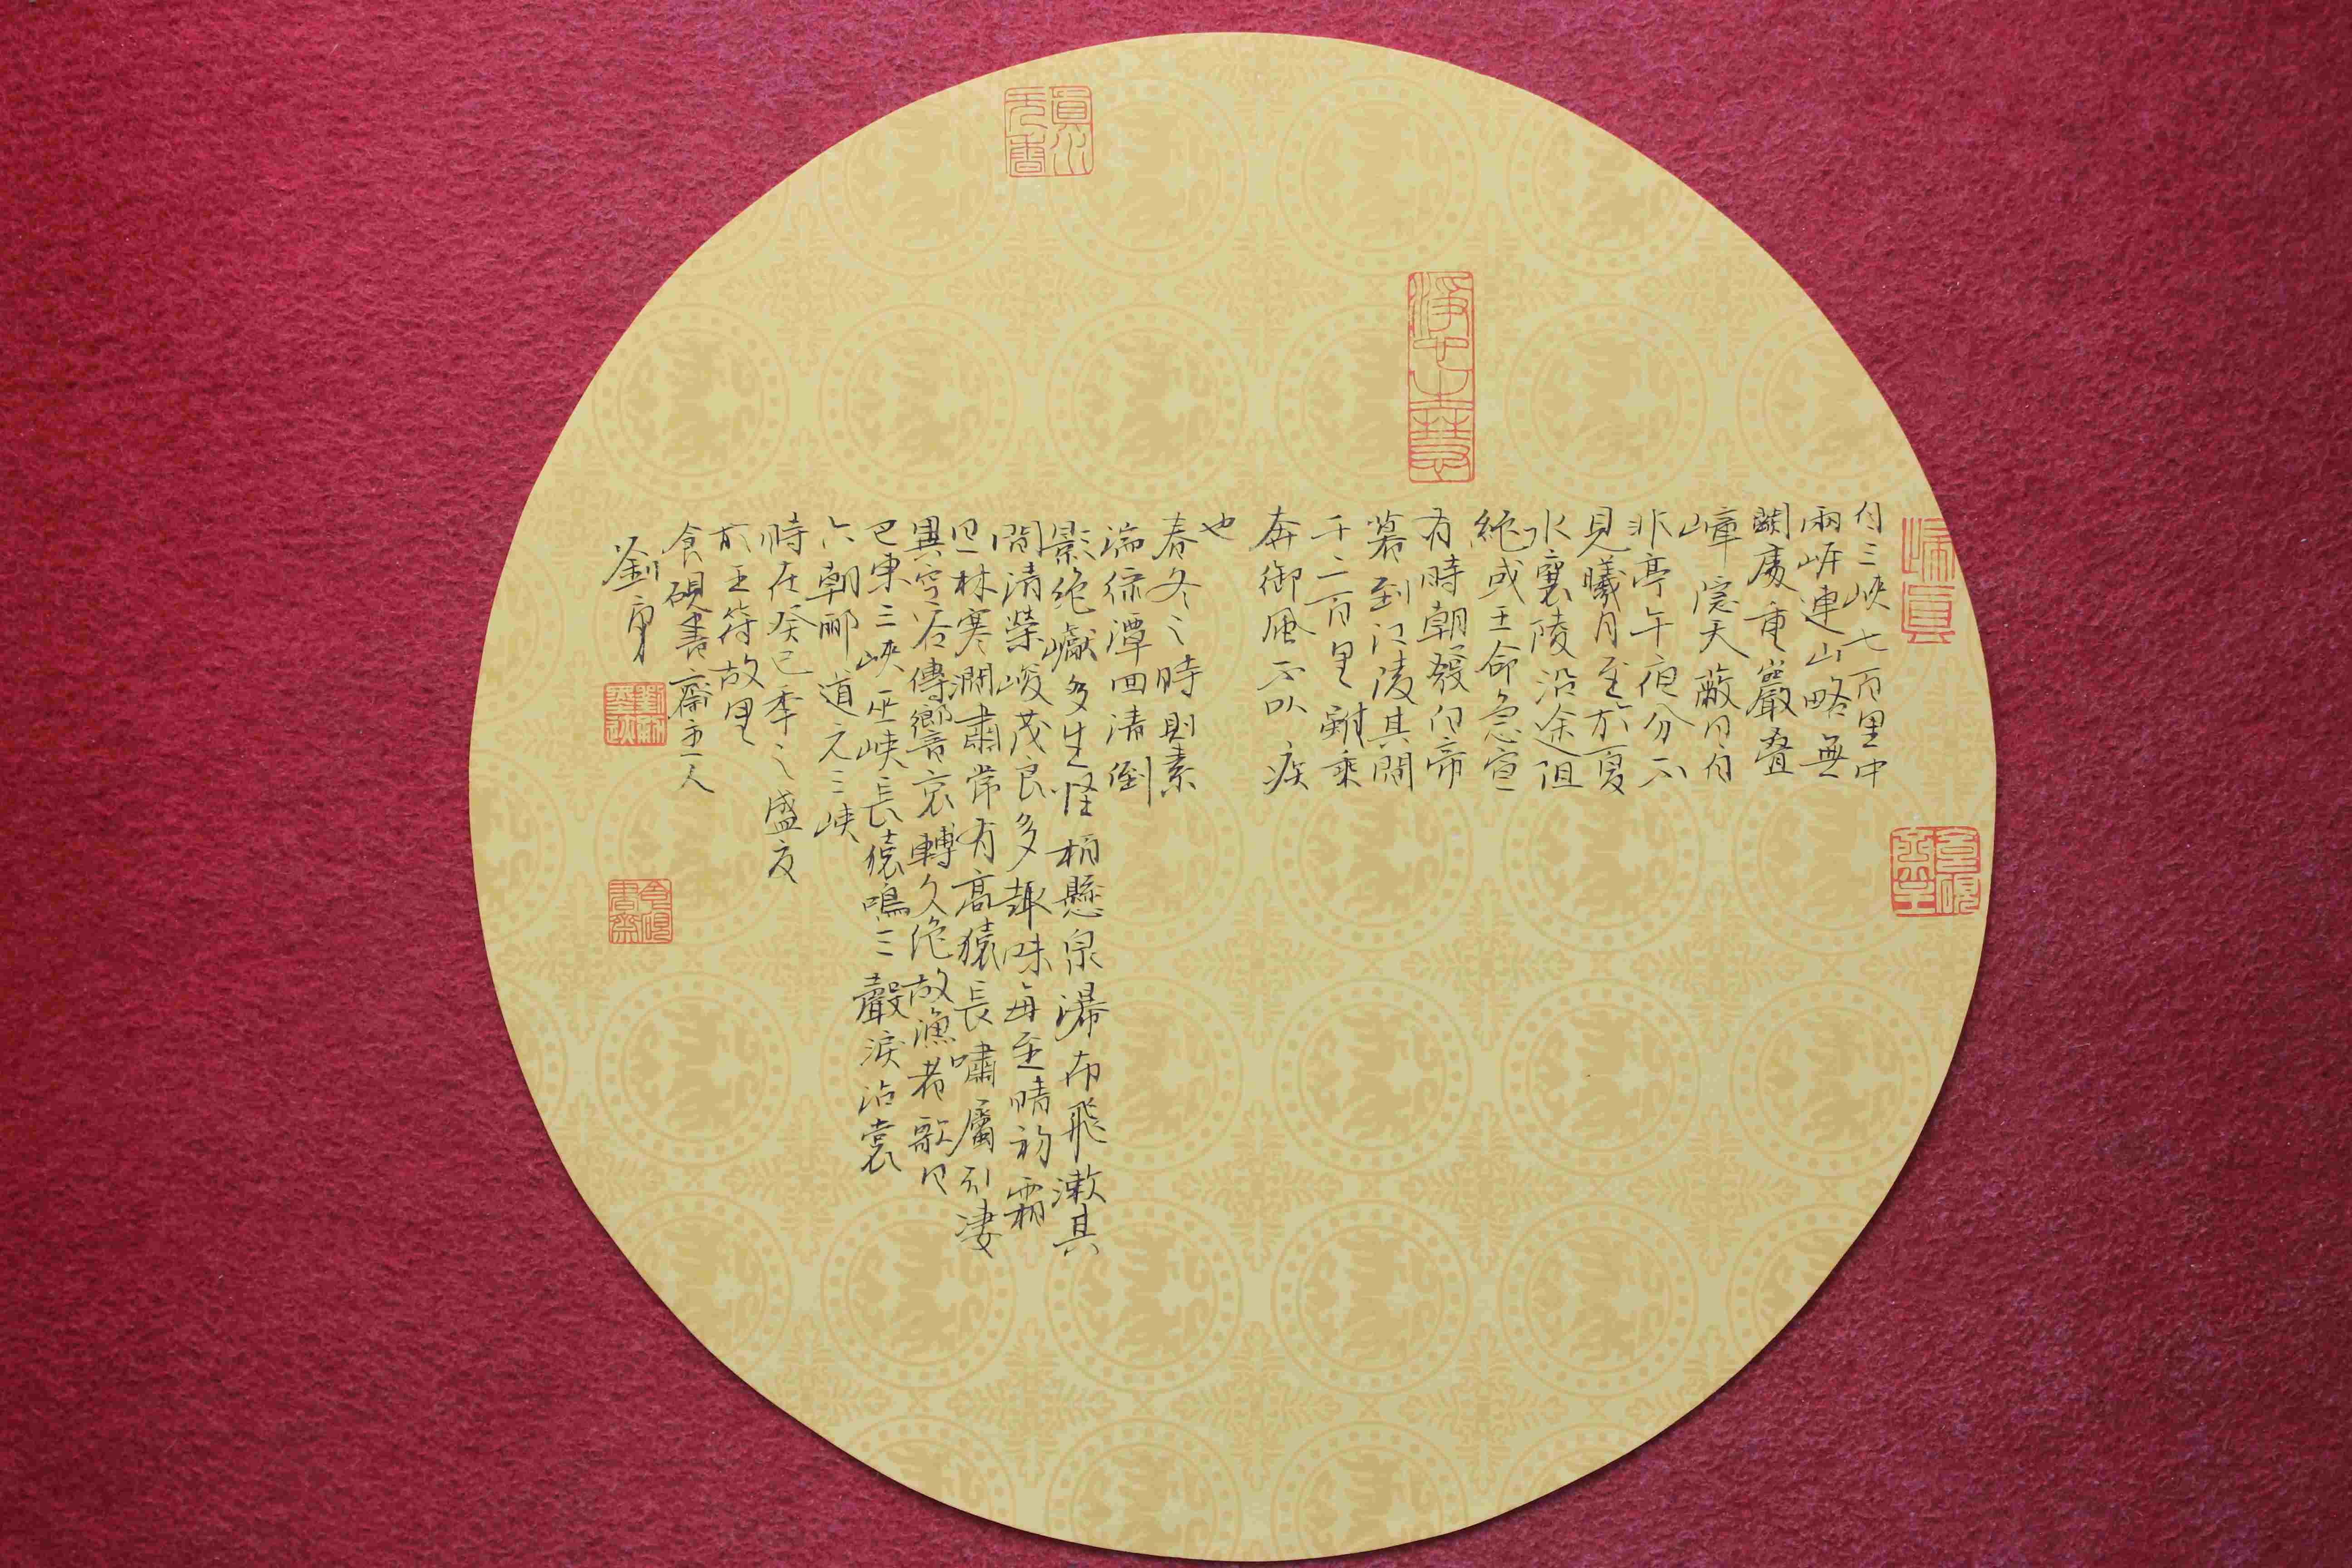 自三峽七百里中
兩岍連山略無
闕處重巖叠
嶂隱天蔽日自
非亭午夜分不
見曦月至於夏
水襄陵沿途阻
絶或王命急宣
有時朝發白帝
暮到江陵其間
千二百里雖乘
奔御風不以疾
也
春冬之時則素
湍綠潭回清倒
影絶巘多生怪柏懸泉瀑布飛漱其
間清榮峻茂良多趣味每至晴初霜
旦林寒澗肅常有高猿長嘯屬引凄
異空谷傳響哀轉久絶故漁者歌曰
巴東三峽巫峽長猿鳴三聲淚沾裳
六朝酈道元三峽
時在癸巳季之盛夏
於王符故里
食硯書齋主人